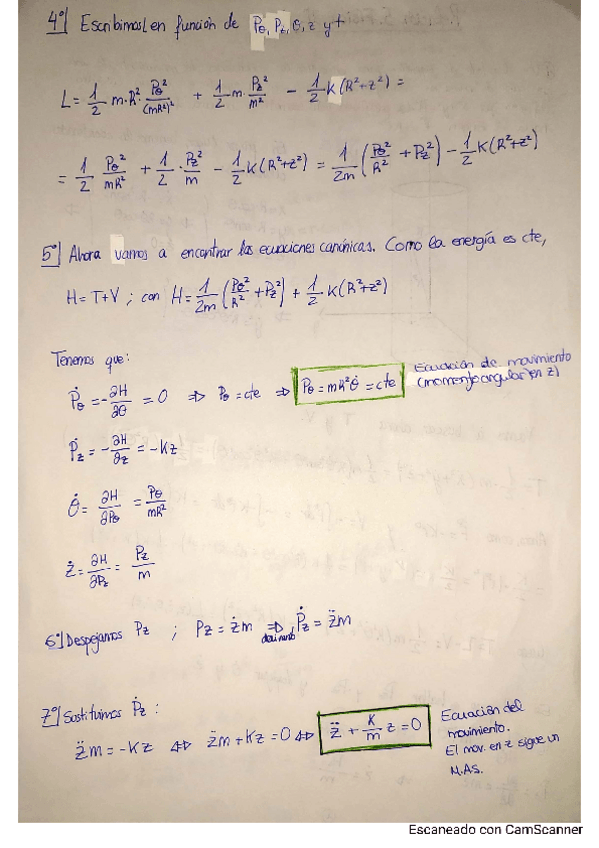 4º| Escribimos L en función de Pθ, Pz, θ, z y t
L = 1/2 m·R² Pθ²/(mR²)² + 1/2 m·Pz²/m² - 1/2 K(R²+z²) =
= 1/2 Pθ²/mR² + 1/2·Pz²/m - 1/2 K(R²+z²) = 1/2m (Pθ²/R² + Pz²) - 1/2 K(R²+z²)
5º| Ahora vamos a encontrar las ecuaciones canónicas. Como la energía es cte,
H = T+V; con H = 1/2m (Pθ²/R² + Pz²) + 1/2·K(R²+z²)
Tenemos que:
Ṗθ = -∂H/∂θ = 0 ⇒ Pθ = cte ⇒ Pθ = mR²θ̇ = cte
Ecuación de movimiento
(momento angular en z)
Ṗz = -∂H/∂z = -Kz
θ̇ = ∂H/∂Pθ = Pθ/mR²
ż = ∂H/∂Pz = Pz/m
6º| Despejamos Pz ; Pz = żm ⇒ Ṗz = z̈m
derivando
7º| Sustituimos Ṗz :
z̈m = -Kz ⇔ z̈m + Kz = 0 ⇔ z̈ + K/m z = 0
Ecuación del
movimiento.
El mov. en z sigue un
M.A.S.
Escaneado con CamScanner